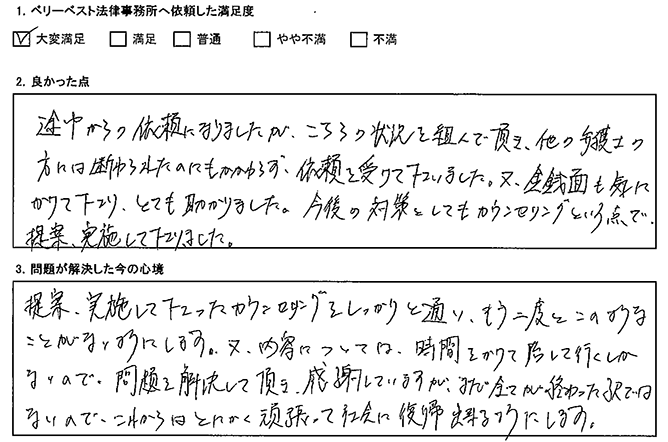 1. ベリーベスト法律事務所へ依頼した満足度
大変満足 満足 普通 やや不満 不満
2. 良かった点
途中からの依頼になりましたが、こちらの状況を組んで頂き、他の弁護士の
方には断わられたのにもかかわらず、依頼を受けて下さいました。又、金銭面も気に
かけて下さり、とても助かりました。今後の対策としてもカウンセリングという点で、
提案、実施して下さりました。
3. 問題が解決した今の心境
提案、実施して下さったカウンセリングをしっかりと通い、もう二度とこのような
ことがないようにします。又、内容については、時間をかけて話して行くしか
ないので、問題を解決して頂き、感謝していますが、まだ全てが終わった訳では
ないので、これからはとにかく頑張って社会に復帰出来るようにします。